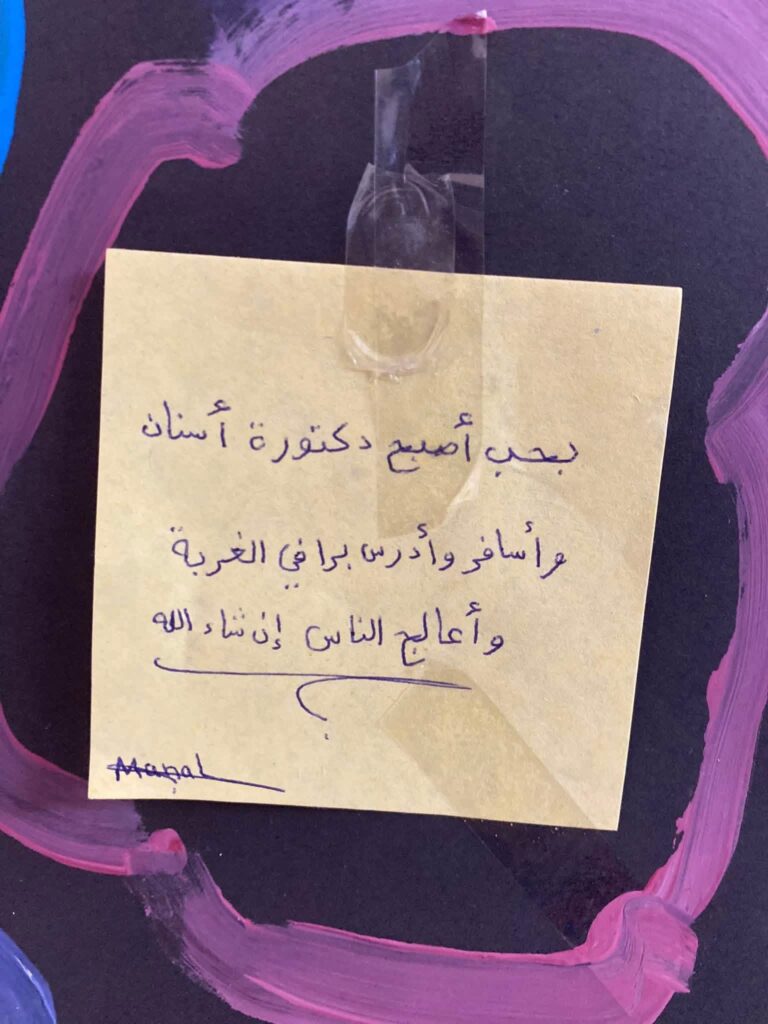 بحب أصبح دكتورة أسنان
وأسافر وأدرس برا في الغربة
وأعالج الناس إن شاء الله
Manal